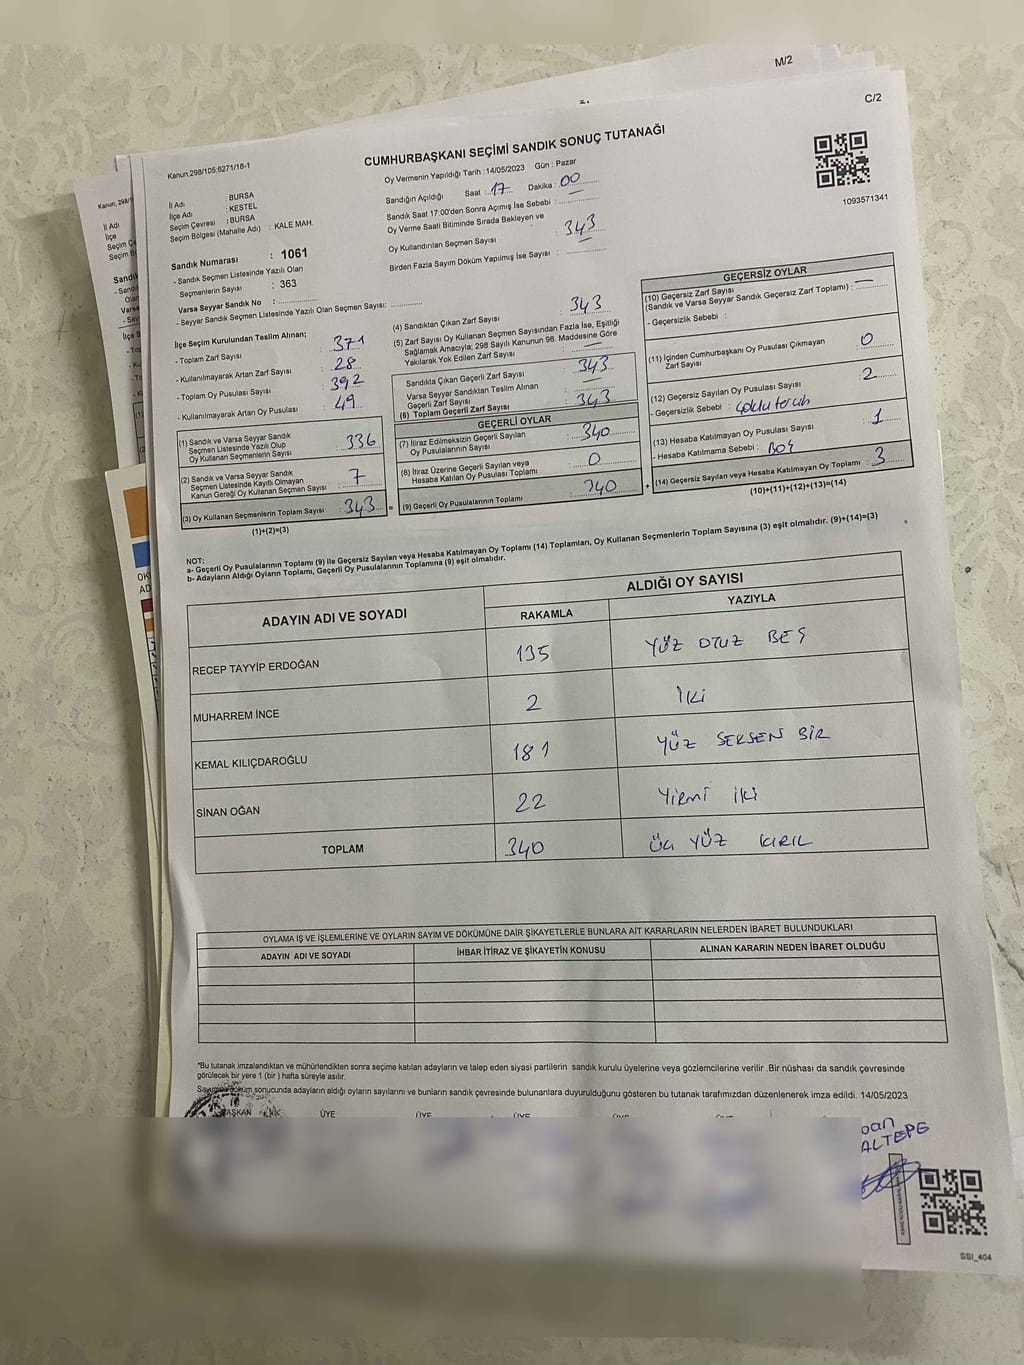 M/2
C/2
Kanun;298/105;6271/18-1
CUMHURBAŞKANI SEÇİMİ SANDIK SONUÇ TUTANAĞI
Oy Vermenin Yapıldığı Tarih :14/05/2023 Gün : Pazar
1093571341
İl Adı : BURSA
İlçe Adı : KESTEL
Seçim Çevresi : BURSA
Seçim Bölgesi (Mahalle Adı) : KALE MAH.
Sandık Numarası : 1061
- Sandık Seçmen Listesinde Yazılı Olan
Seçmenlerin Sayısı : 363
Varsa Seyyar Sandık No :
- Seyyar Sandık Seçmen Listesinde Yazılı Olan Seçmen Sayısı:
Sandığın Açıldığı Saat : 17 Dakika : 00
Sandık Saat 17:00'den Sonra Açımış İse Sebebi :
Oy Verme Saati Bitiminde Sırada Bekleyen ve
Oy Kullandırılan Seçmen Sayısı : 343
Birden Fazla Sayım Döküm Yapılmış İse Sayısı :
İlçe Seçim Kurulundan Teslim Alınan;
- Toplam Zarf Sayısı : 371
- Kullanılmayarak Artan Zarf Sayısı : 28
- Toplam Oy Pusulası Sayısı : 392
- Kullanılmayarak Artan Oy Pusulası : 49
(1) Sandık ve Varsa Seyyar Sandık
Seçmen Listesinde Yazılı Olup
Oy Kullanan Seçmenlerin Sayısı : 336
(2) Sandık ve Varsa Seyyar Sandık
Seçmen Listesinde Kayıtlı Olmayan
Kanun Gereği Oy Kullanan Seçmen Sayısı : 7
(3) Oy Kullanan Seçmenlerin Toplam Sayısı : 343
(1)+(2)=(3)
(4) Sandıktan Çıkan Zarf Sayısı : 343
(5) Zarf Sayısı Oy Kullanan Seçmen Sayısından Fazla İse, Eşitliği
Sağlamak Amacıyla; 298 Sayılı Kanunun 98. Maddesine Göre
Yakılarak Yok Edilen Zarf Sayısı : —
Sandıkta Çıkan Geçerli Zarf Sayısı : 343
Varsa Seyyar Sandıktan Teslim Alınan
Geçerli Zarf Sayısı : —
(6) Toplam Geçerli Zarf Sayısı : 343
GEÇERLİ OYLAR
(7) İtiraz Edilmeksizin Geçerli Sayılan
Oy Pusulasının Sayısı : 340
(8) İtiraz Üzerine Geçerli Sayılan veya
Hesaba Katılan Oy Pusulası Toplamı : 0
(9) Geçerli Oy Pusulalarının Toplamı : 340
GEÇERSİZ OYLAR
(10) Geçersiz Zarf Sayısı
(Sandık ve Varsa Seyyar Sandık Geçersiz Zarf Toplamı) : —
- Geçersizlik Sebebi :
(11) İçinden Cumhurbaşkanı Oy Pusulası Çıkmayan
Zarf Sayısı : 0
(12) Geçersiz Sayılan Oy Pusulası Sayısı : 2
- Geçersizlik Sebebi : çoklu tercih
(13) Hesaba Katılmayan Oy Pusulası Sayısı : 1
- Hesaba Katılmama Sebebi : BOŞ
(14) Geçersiz Sayılan veya Hesaba Katılmayan Oy Toplamı : 3
(10)+(11)+(12)+(13)=(14)
NOT:
a- Geçerli Oy Pusulalarının Toplamı (9) ile Geçersiz Sayılan veya Hesaba Katılmayan Oy Toplamı (14) Toplamları, Oy Kullanan Seçmenlerin Toplam Sayısına (3) eşit olmalıdır. (9)+(14)=(3)
b- Adayların Aldığı Oyların Toplamı, Geçerli Oy Pusulalarının Toplamına (9) eşit olmalıdır.
ADAYIN ADI VE SOYADI ALDIĞI OY SAYISI
RAKAMLA YAZIYLA
RECEP TAYYİP ERDOĞAN 135 YÜZ OTUZ BEŞ
MUHARREM İNCE 2 İKİ
KEMAL KILIÇDAROĞLU 181 YÜZ SEKSEN BİR
SİNAN OĞAN 22 Yirmi iki
TOPLAM 340 ÜÇ YÜZ KIRK
OYLAMA İŞ VE İŞLEMLERİNE VE OYLARIN SAYIM VE DÖKÜMÜNE DAİR ŞİKAYETLERLE BUNLARA AİT KARARLARIN NELERDEN İBARET BULUNDUKLARI
ADAYIN ADI VE SOYADI İHBAR İTİRAZ VE ŞİKAYETİN KONUSU ALINAN KARARIN NEDEN İBARET OLDUĞU
*Bu tutanak imzalandıktan ve mühürlendikten sonra seçime katılan adayların ve talep eden siyasi partilerin sandık kurulu üyelerine veya gözlemcilerine verilir .Bir nüshası da sandık çevresinde
görülecek bir yere 1 (bir ) hafta süreyle asılır.
Sayım döküm sonucunda adayların aldığı oyların sayılarını ve bunların sandık çevresinde bulunanlara duyurulduğunu gösteren bu tutanak tarafımızdan düzenlenerek imza edildi. 14/05/2023
BAŞKAN ÜYE ÜYE ÜYE
ALTEPE
SSI_404